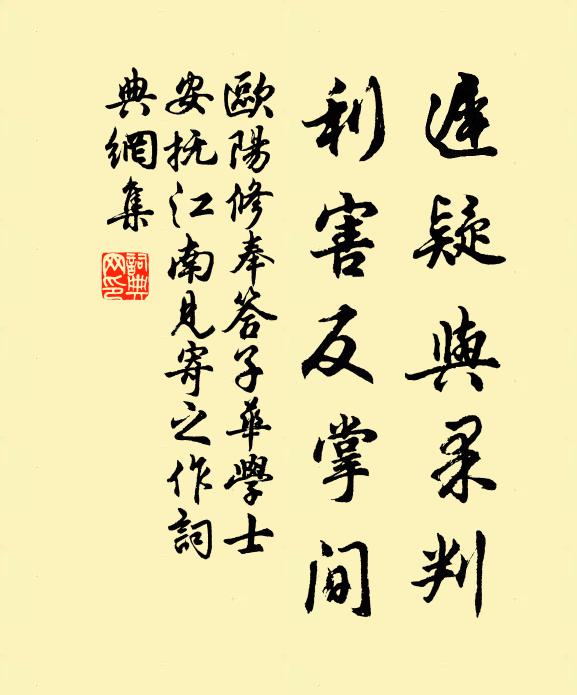 遲疑與果判
利害反掌間
歐陽修奉答子華學士
安抚江南見寄之作詞
典網集
詞典
网印